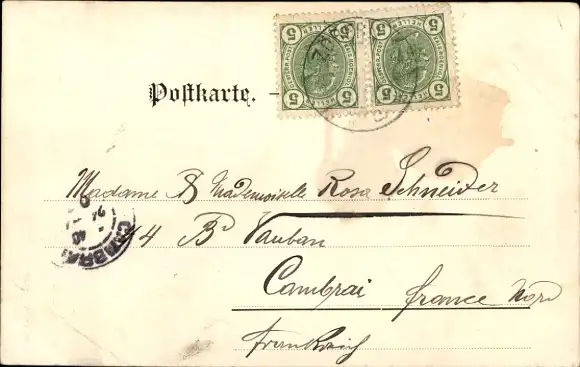 5 5 5 5
HELLER HELLER
5 5 5 5
Postkarte.
Madame & Mademoiselle Rosa Schneider
14 Bd Vauban
CAMBRAI
Cambrai france Nord
Frankreich